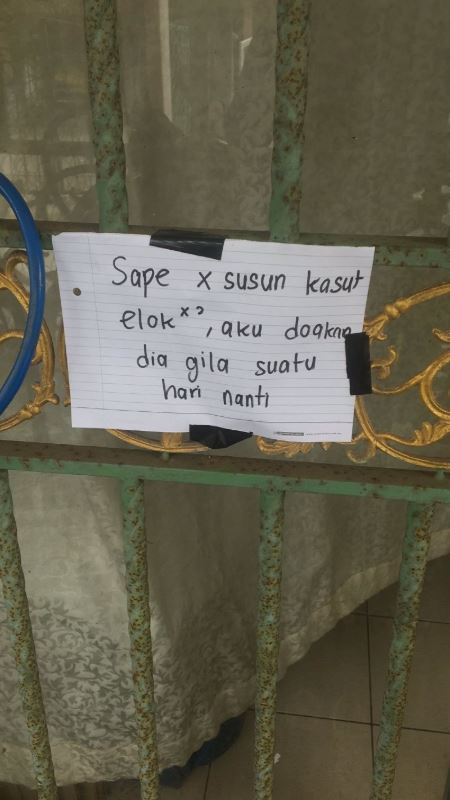 Sape x susun kasut
elok x², aku doakan
dia gila suatu
hari nanti